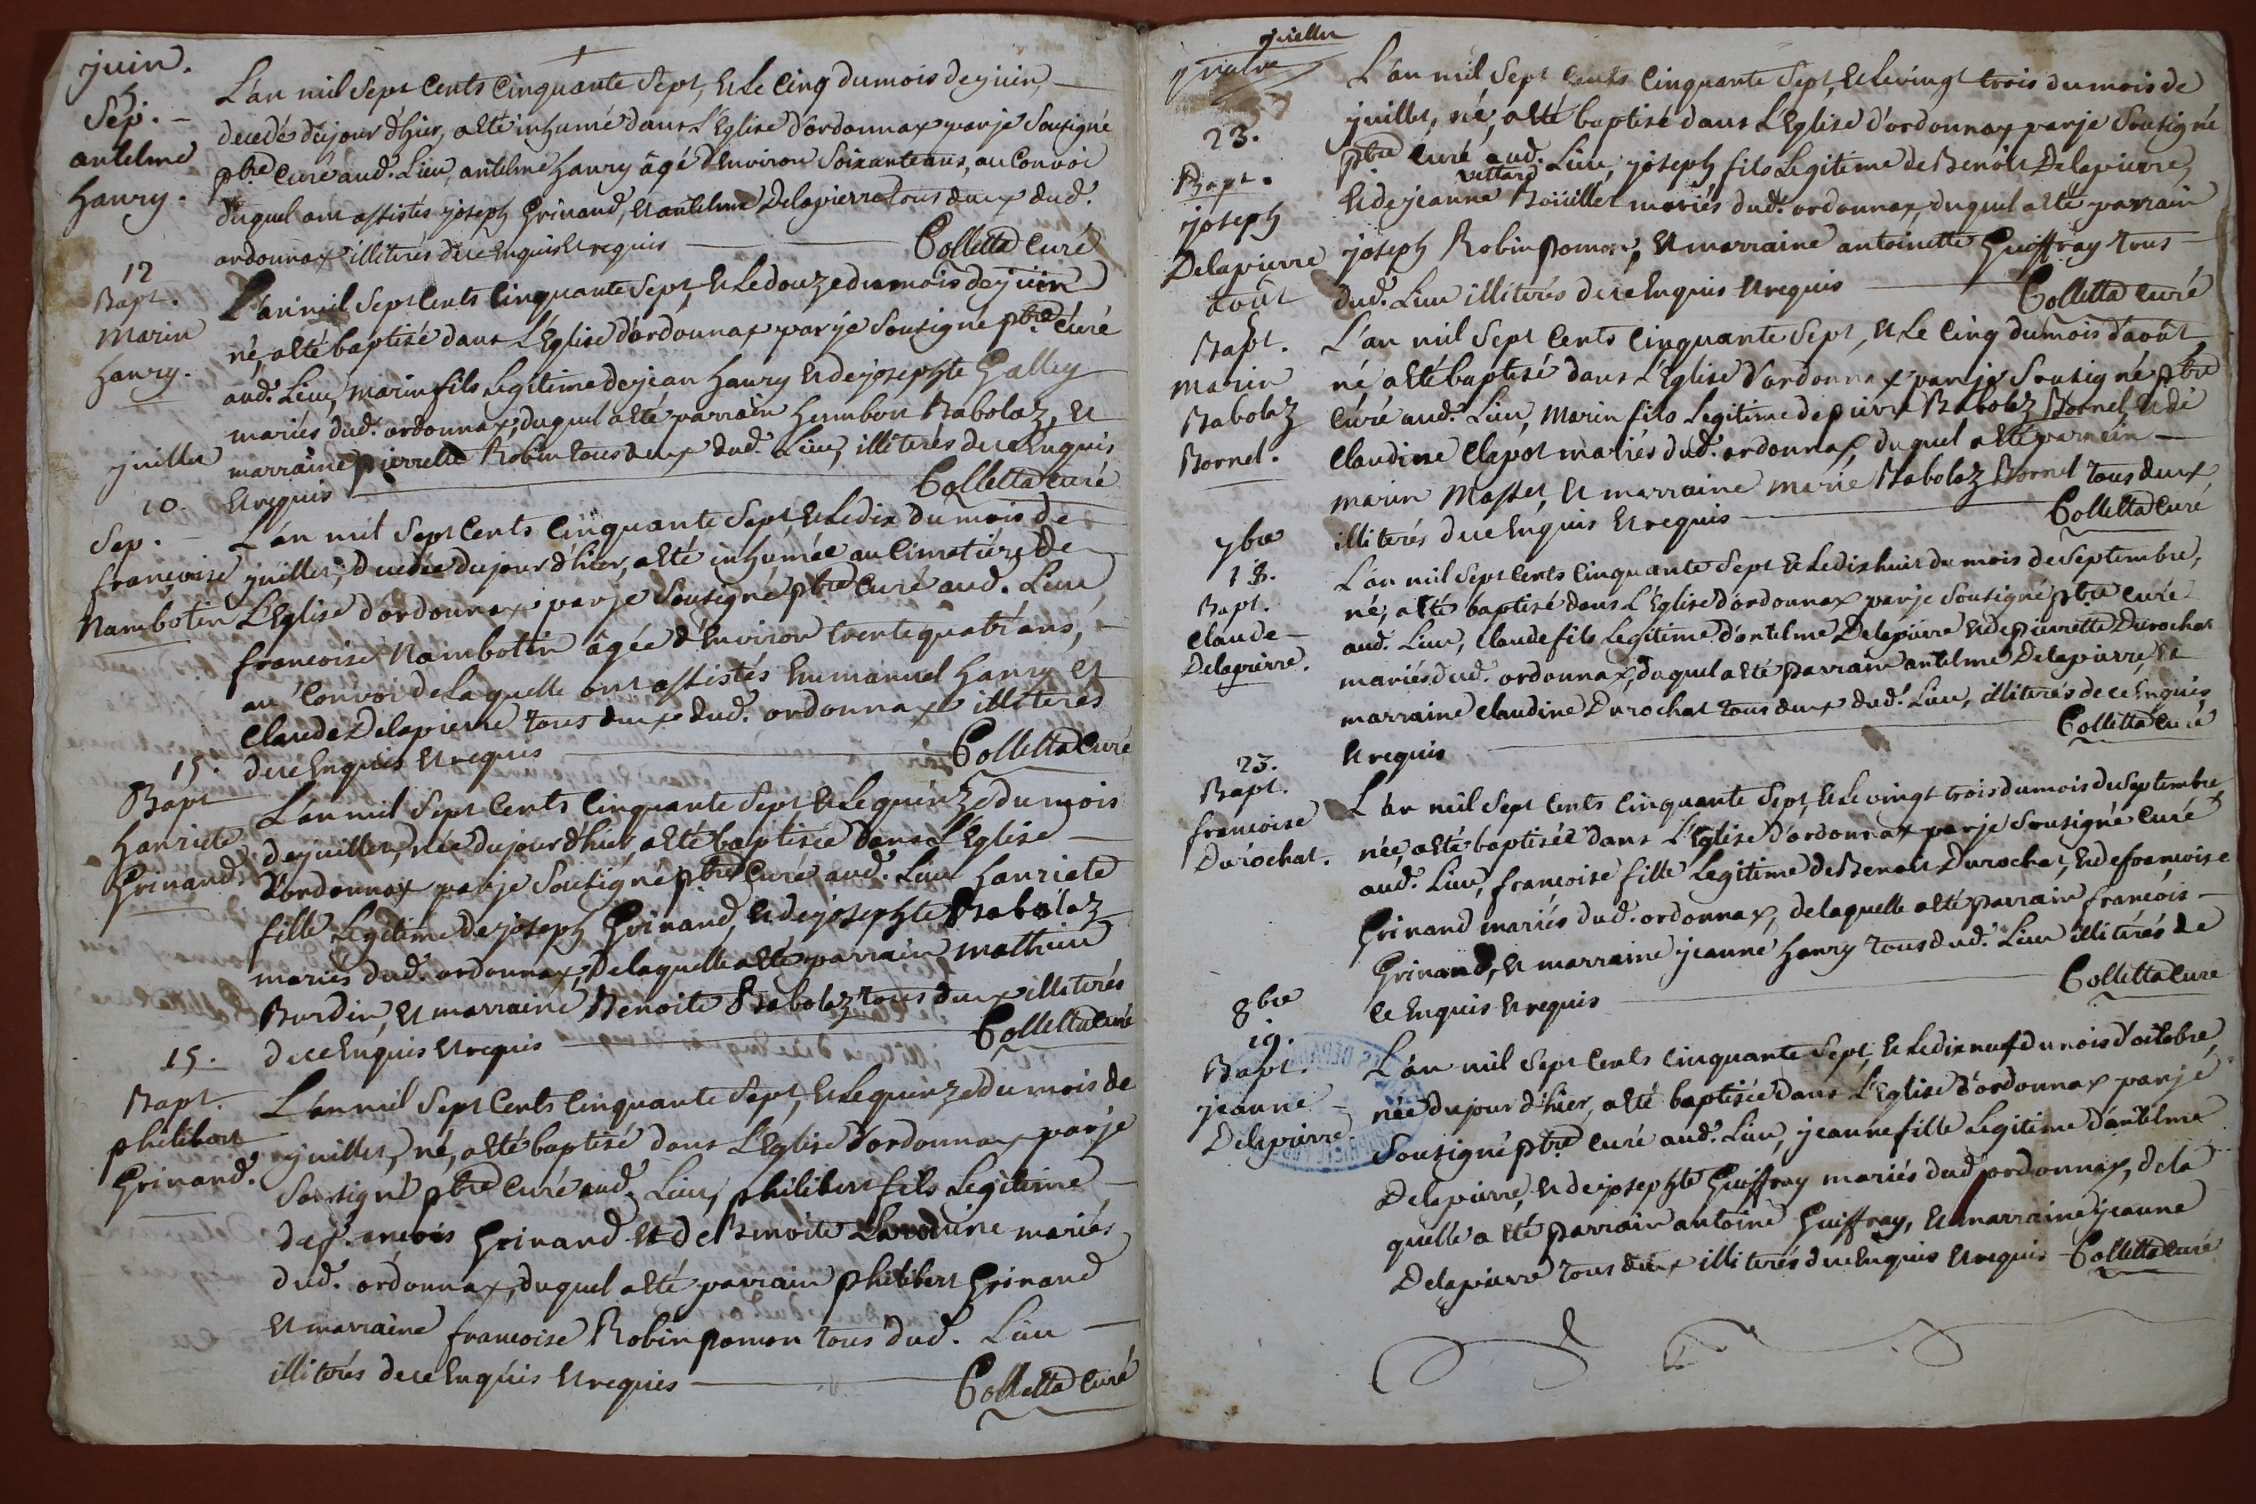 juin.
5
Sep. -
antelme
haury.
L'an mil Sept Cents Cinquante Sept, et Le Cinq du mois de juin,
decedé du jour d'hier, a été inhumé dans L'Eglise d'ordonnax par je Sousigné
pbre Curé aud. Lieu, antelme haury âgé d'Environ Soixante ans, au Convoi
duquel ont assistés joseph Grinand, et antelme Delapierre tous deux dud.
ordonnax illiterés de ce Enquis et requis
Colletta Curé
12
Bapt.
Marin
haury.
L'an mil Sept Cents Cinquante Sept, et Le douze du mois de juin
né, a été baptisé dans L'Eglise d'ordonnax par je Sousigné pbre Curé
aud. Lieu, Marin fils Legitime de jean haury et de josephte Galley
mariés dud. ordonnax, duquel a été parrain humbert Babolaz, et
marraine pierrette Robin tous deux dud. Lieu, illiterés de ce Enquis
et requis
Colletta Curé
juillet
10.
Sep.
francoise
Nambotin
L'an mil Sept Cents Cinquante Sept, et Le dix du mois de
juillet, decedée du jour d'hier, a été inhumée au Cimetière de
L'Eglise d'ordonnax par je Sousigné pbre Curé aud. Lieu
francoise Nambotin âgée d'Environ trente quatr'ans,
au Convoi de Laquelle ont assistés Emmanuel haury et
Claude Delapierre tous deux dud. ordonnax illiterés
de ce Enquis et requis
Colletta Curé
15.
Bapt
hanriete
Grinand.
L'an mil Sept Cents Cinquante Sept et Le quinze du mois
de juillet, née du jour d'hier, a été baptisée dans L'Eglise
d'ordonnax par je Sousigné pbre Curé aud. Lieu hanriete
fille Legitime de joseph Grinand, et de josephte Babolaz
mariés dud. ordonnax, de laquelle a été parrain mathieu
Burdin, et marraine Benoite Babolaz tous deux illiterés
de ce Enquis et requis
Colletta Curé
15.
Bapt.
philibert
Grinand.
L'an mil Sept Cents Cinquante Sept, et Le quinze du mois de
juillet, né, a été baptisé dans L'Eglise d'ordonnax par je
Sousigné pbre Curé aud. Lieu, philibert fils Legitime
de francois Grinand et de Benoite mariés
dud. ordonnax, duquel a été parrain philibert Grinand
et marraine francoise Robin pomon tous dud. Lieu
illiterés de ce Enquis et requis
Colletta Curé
juillet
23.
Bapt.
joseph
Delapierre
L'an mil Sept Cents Cinquante Sept, et Le vingt trois du mois de
juillet, né, a été baptisé dans L'Eglise d'ordonnax par je Sousigné
pbre Curé aud. Lieu, joseph fils Legitime de Benoit Delapierre,
vettard
et de jeanne Boüillet mariés dud. ordonnax, duquel a été parrain
joseph Robin pomon, et marraine antoinette Guiffray tous
dud. Lieu illiterés de ce Enquis et requis
Colletta Curé
août
5
Bapt.
marin
Babolaz
Bornel.
L'an mil Sept Cents Cinquante Sept, et Le Cinq du mois d'août
né a été baptisé dans L'Eglise d'ordonnax par je Sousigné pbre
Curé aud. Lieu, Marin fils Legitime de pierre Babolaz Bornel, et de
Claudine Clapot mariés dud. ordonnax, duquel a été parrain
marin Masset, et marraine marie Babolaz Bornel tous deux
illiterés de ce Enquis et requis
Colletta Curé
7bre
18.
Bapt.
Claude
Delapierre.
L'an mil Sept Cents Cinquante Sept et Le dix huit du mois de Septembre,
né, a été baptisé dans L'Eglise d'ordonnax par je Sousigné pbre Curé
aud. Lieu, Claude fils Legitime d'antelme Delapierre et de pierrette Durochat
mariés dud. ordonnax, duquel a été parrain antelme Delapierre, et
marraine Claudine Durochat tous deux dud. Lieu, illiterés de ce Enquis
et requis
Colletta Curé
23.
Bapt.
francoise
Durochat.
L'an mil Sept Cents Cinquante Sept, et Le vingt trois du mois de Septembre
née, a été baptisée dans L'Eglise d'ordonnax par je Sousigné Curé
aud. Lieu, francoise fille Legitime de Benoit Durochat, et de francoise
Grinand mariés dud. ordonnax, de laquelle a été parrain francois
Grinand, et marraine jeanne haury tous dud. Lieu illiterés de
ce Enquis et requis
Colletta Curé
8bre
19.
Bapt.
jeanne
Delapierre.
L'an mil Sept Cents Cinquante Sept, et Le dix neuf du mois d'octobre,
née du jour d'hier, a été baptisée dans L'Eglise d'ordonnax par je
Sousigné pbre Curé aud. Lieu, jeanne fille Legitime d'antelme
Delapierre, et de josephte Guiffray mariés dud. ordonnax, de la
quelle a été parrain antoine Guiffray, et marraine jeanne
Delapierre tous deux illiterés de ce Enquis et requis Colletta Curé